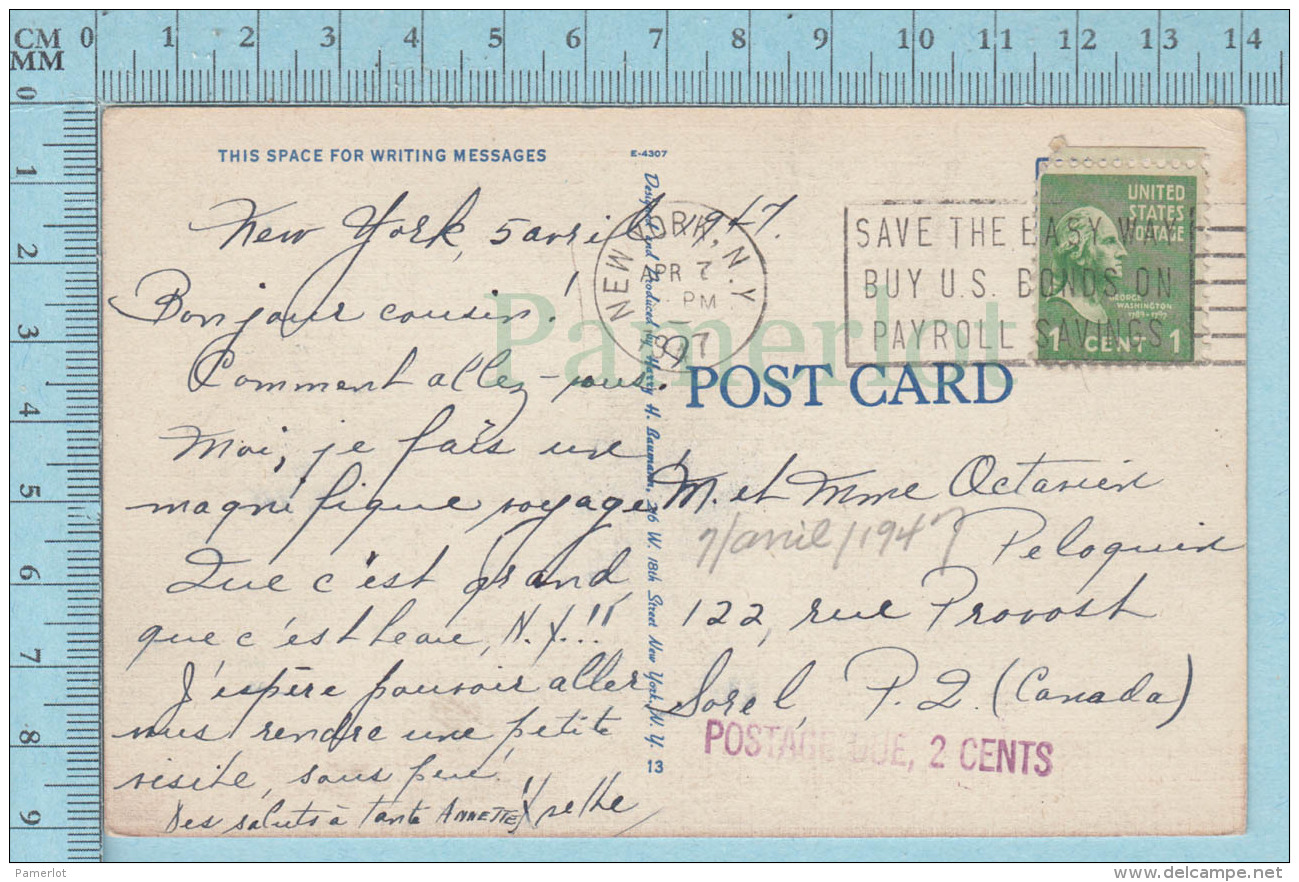 CM 0 1 2 3 4 5 6 7 8 9 10 11 12 13 14
MM
0
1
2
3
4
5
6
7
8
9
THIS SPACE FOR WRITING MESSAGES
E-4307
New York, 5 avril 1947.
Bonjour cousin!
Comment allez-vous?
Moi, je fais un
magnifique voyage
Que c'est grand,
que c'est beau, N.Y.!!
J'espère pouvoir aller
vous rendre une petite
visite, sous peu.
Des saluts à tante ANNETTE,
Designed and Produced by Harry H. Baumann, 216 W. 18th Street New York, N. Y. 13
NEW YORK, N.Y.
APR 7
PM
1947
SAVE THE EASY WAY
BUY U.S. BONDS ON
PAYROLL SAVINGS
UNITED
STATES
POSTAGE
GEORGE
WASHINGTON
1789-1797
1 CENT 1
Pamerlot
POST CARD
M. et Mme Octavien
Peloquin
7/avril/1947
122, rue Provost
Sorel, P.Q. (Canada)
POSTAGE DUE, 2 CENTS
Pamerlot
www.delcampe.net